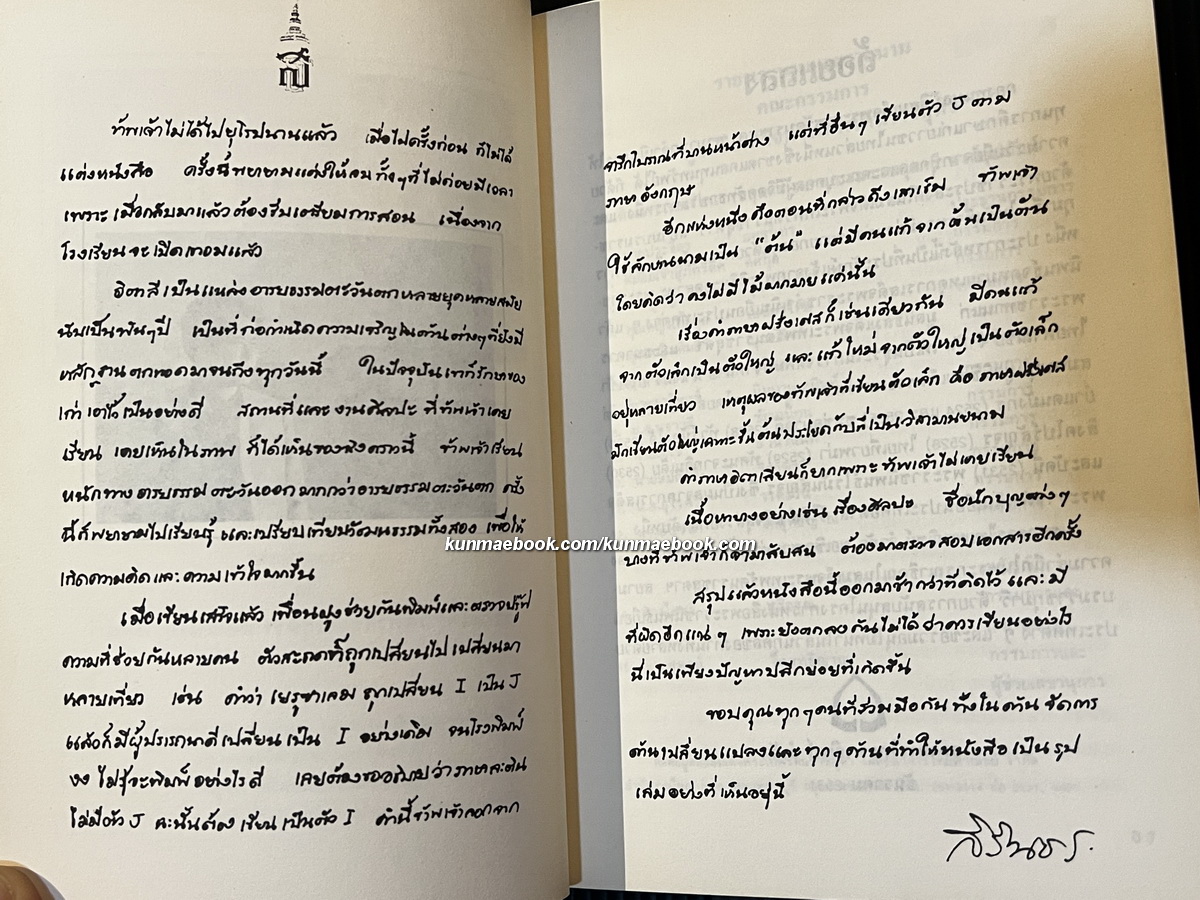 ข้าพเจ้าไม่ได้ไปยุโรปนานแล้ว เมื่อไปครั้งก่อน ก็ไม่ได้
แต่งหนังสือ ครั้งนี้พยายามแต่งให้จบทั้งๆที่ไม่ค่อยมีเวลา
เพราะ เมื่อกลับมาแล้วต้องรีบเตรียมการสอน เนื่องจาก
โรงเรียนจะเปิดเทอมแล้ว
อิตาลีเป็นแหล่งอารยธรรมตะวันตกหลายยุคหลายสมัย
นับเป็นพันๆปี เป็นที่ก่อกำเนิดความเจริญในด้านต่างๆที่ยังมี
หลักฐานตกทอดมาจนถึงทุกวันนี้ ในปัจจุบันเขาก็รักษาของ
เก่าเอาไว้เป็นอย่างดี สถานที่และงานศิลปะที่ข้าพเจ้าเคย
เรียน เคยเห็นในภาพ ก็ได้เห็นของจริงคราวนี้ ข้าพเจ้าเรียน
หนักทางอารยธรรมตะวันออกมากกว่าอารยธรรมตะวันตก ครั้ง
นี้ก็พยายามไปเรียนรู้ และเปรียบเทียบวัฒนธรรมทั้งสอง เพื่อให้
เกิดความคิดและความเข้าใจมากขึ้น
เมื่อเขียนเสร็จแล้ว เพื่อนฝูงช่วยกันพิมพ์และตรวจปรู๊ฟ
ความที่ช่วยกันหลายคน ตัวสะกดก็ถูกเปลี่ยนไปเปลี่ยนมา
หลายเที่ยว เช่น คำว่า เยรูซาเลม ถูกเปลี่ยน I เป็น J
แล้วก็มีผู้ปรารถนาดีเปลี่ยนเป็น I อย่างเดิม จนโรงพิมพ์
งง ไม่รู้จะพิมพ์อย่างไรดี เลยต้องขออธิบายว่าภาษาละติน
ไม่มีตัว J ฉะนั้นต้องเขียนเป็นตัว I คำนี้ข้าพเจ้าลอกจาก
จารึกโบราณที่บานหน้าต่าง แต่ที่อื่นๆ เขียนตัว J ตาม
ภาษาอังกฤษ
อีกแห่งหนึ่งคือตอนที่กล่าวถึงเสาเข็ม ข้าพเจ้า
ใช้ลักษณนามเป็น "ต้น" แต่มีคนแก้จากต้นเป็นตัน
โดยคิดว่าคงไม่มีไม้มากมายแค่นั้น
เรื่องคำภาษาฝรั่งเศสก็เช่นเดียวกัน มีคนแก้
จากตัวเล็กเป็นตัวใหญ่ และแก้ใหม่จากตัวใหญ่เป็นตัวเล็ก
อยู่หลายเที่ยว เหตุผลของข้าพเจ้าที่เขียนตัวเล็ก คือ ภาษาฝรั่งเศส
มักเขียนตัวใหญ่เฉพาะขึ้นต้นประโยคกับที่เป็นวิสามานยนาม
คำภาษาอิตาเลียนก็ยากเพราะข้าพเจ้าไม่เคยเรียน
เนื้อหาบางอย่างเช่นเรื่องศิลปะ ชื่อนักบุญต่างๆ
บางทีข้าพเจ้าก็จำมาสับสน ต้องมาตรวจสอบเอกสารอีกครั้ง
สรุปแล้วหนังสือนี้ออกมาช้ากว่าที่คิดไว้ และมี
ที่ผิดอีกแน่ๆ เพราะยังตกลงกันไม่ได้ว่าควรเขียนอย่างไร
นี่เป็นเพียงปัญหาปลีกย่อยที่เกิดขึ้น
ขอบคุณทุกๆคนที่ร่วมมือกันทั้งในด้านจัดการ
ด้านเปลี่ยนแปลงและทุกๆด้านที่ทำให้หนังสือเป็นรูป
เล่มอย่างที่เห็นอยู่นี้
สิรินธร
kunmaebook.com/kunmaebook.com